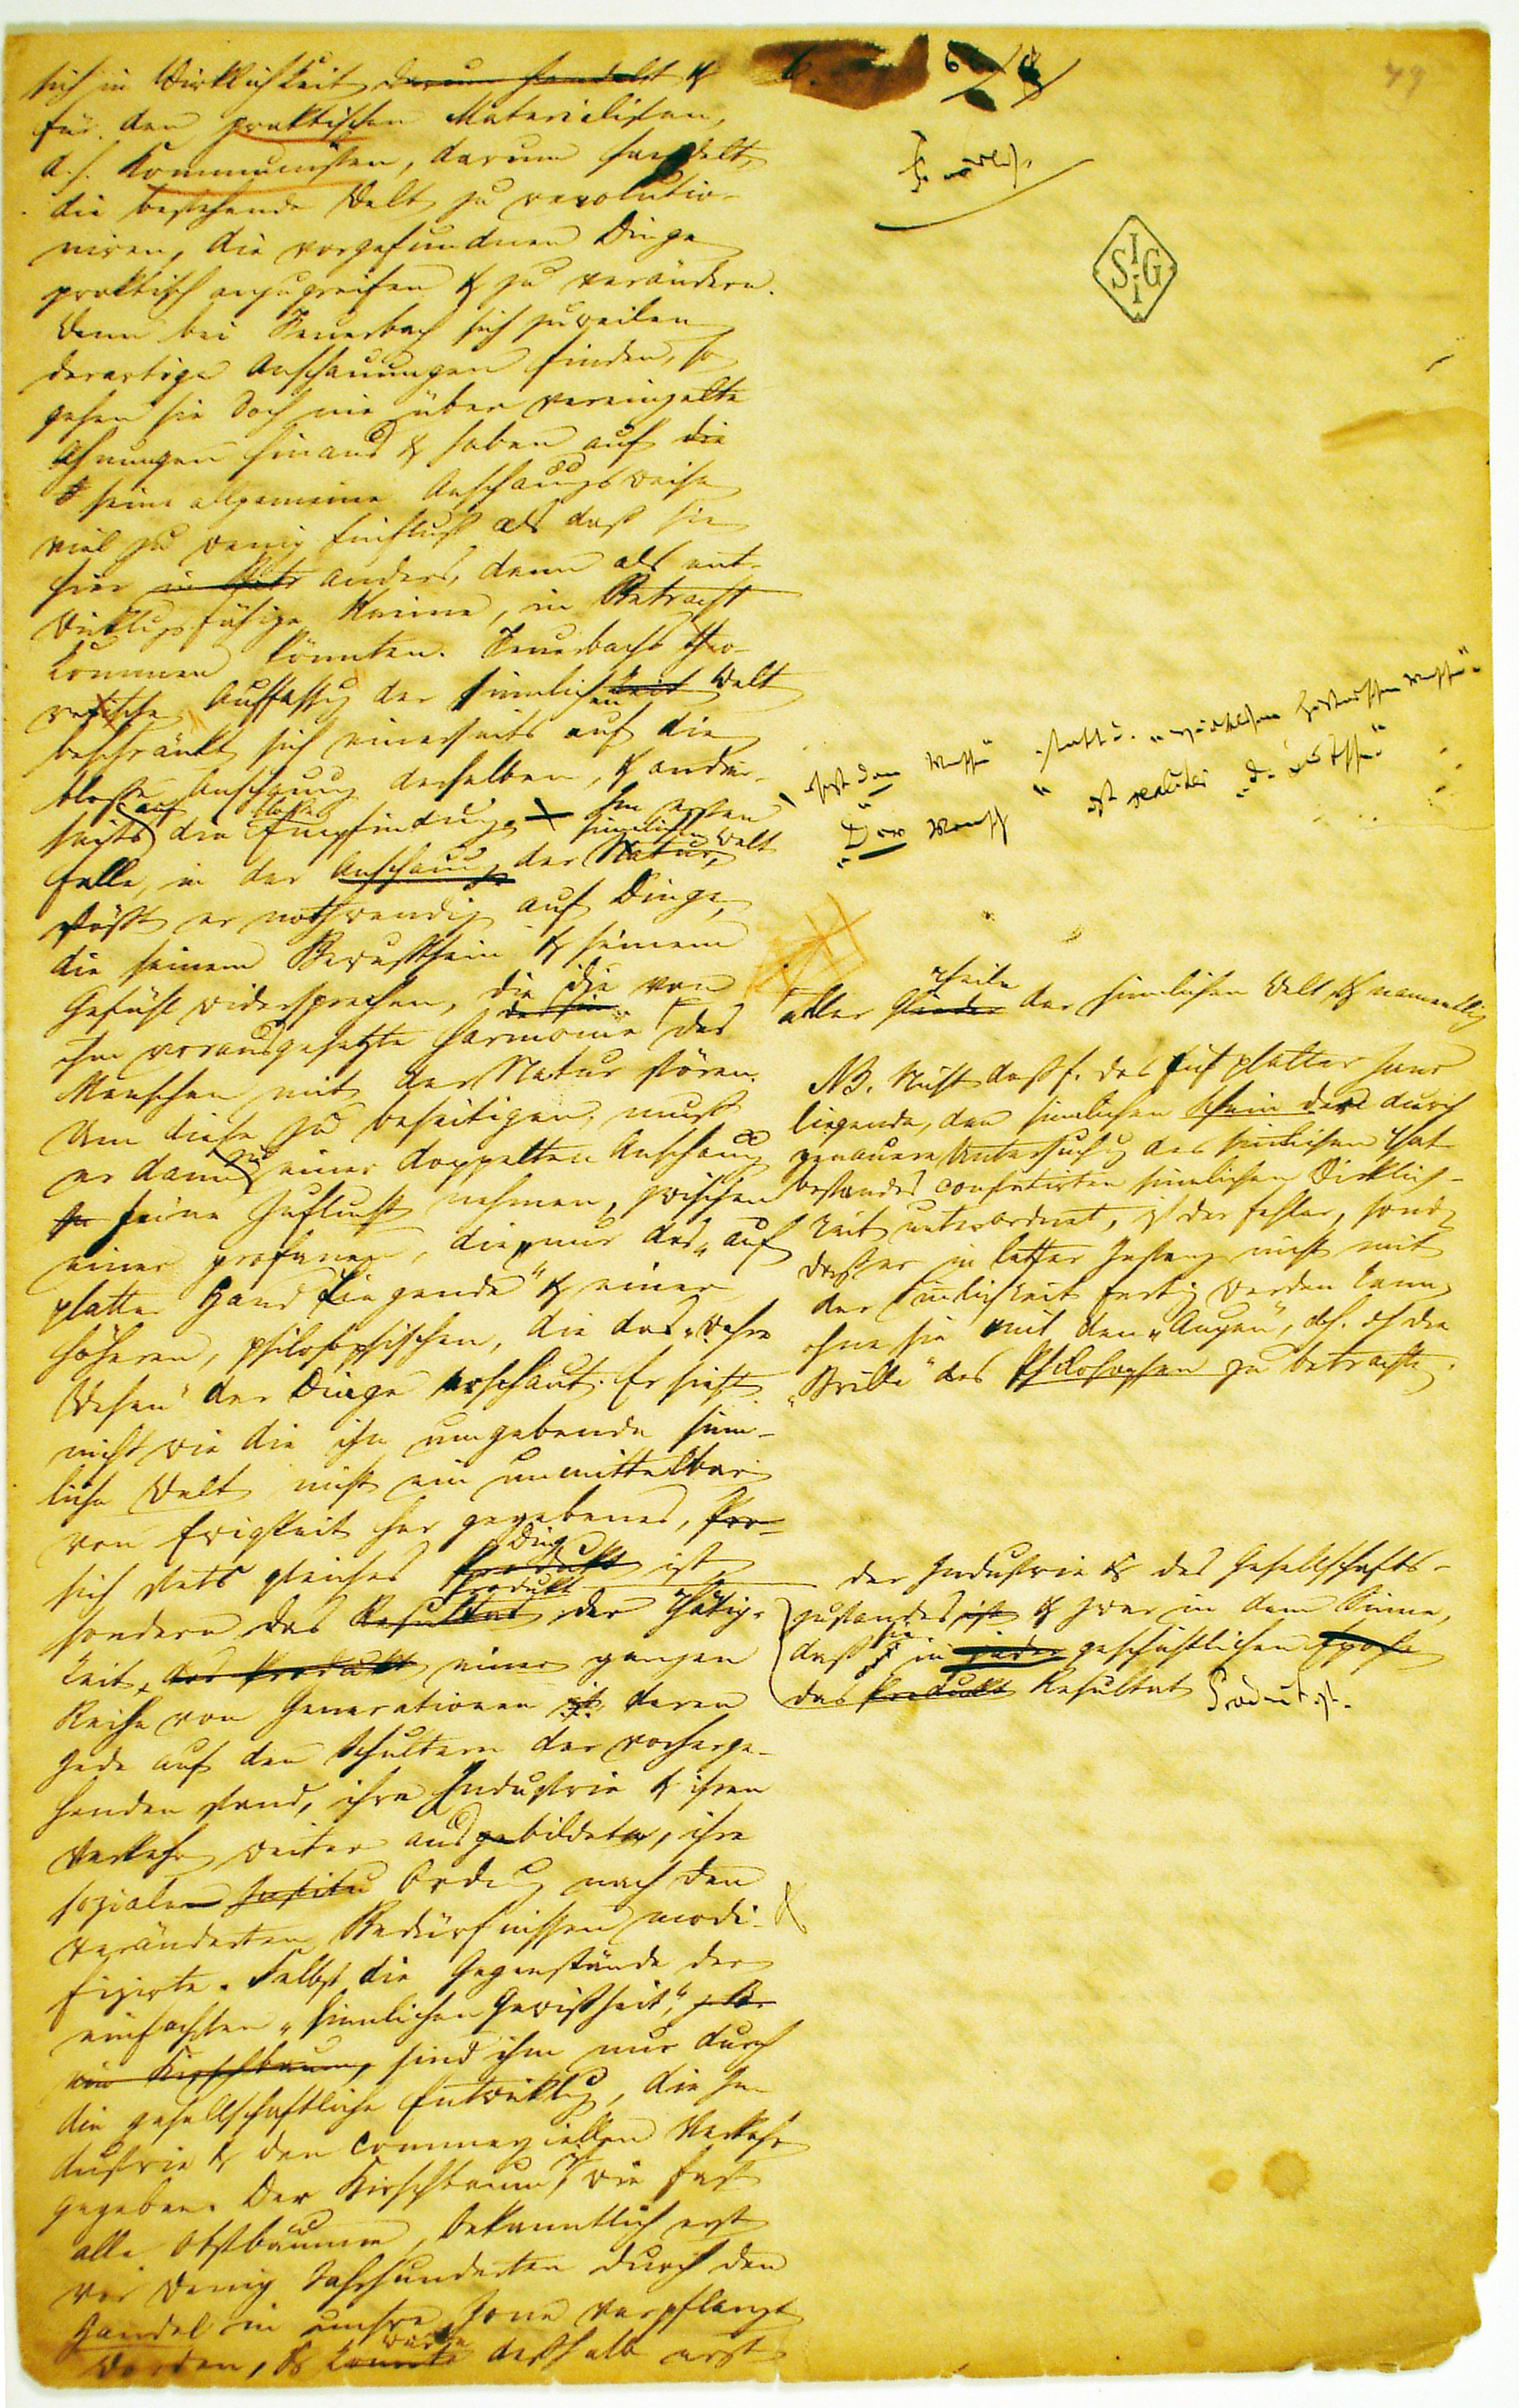 sich in Wirklichkeit darum handelt &
für den praktischen Materialisten,
d.h. Kommunisten, darum handelt,
die bestehende Welt zu revolutio-
niren, die vorgefundnen Dinge
praktisch anzugreifen & zu verändern.
Wenn bei Feuerbach sich zuweilen
derartige Anschauungen finden, so
gehen sie doch nie über vereinzelte
Ahnungen hinaus & haben auf die
seine allgemeine Anschauungsweise
viel zu wenig Einfluß als daß sie
hier anders, denn als ent-
wicklungsfähige Keime, in Betracht
kommen könnten. Feuerbachs theo-
retische Auffassung der sinnlichen Welt
beschränkt sich einerseits auf die
bloße Anschauung derselben, & andrer-
seits auf die bloße Empfindung. Im ersten
Falle, in der Anschauung der Natur, sinnlichen Welt
stößt er nothwendig auf Dinge,
die seinem Bewußtsein & seinem
Gefühl widersprechen, die die von
ihm vorausgesetzte Harmonie des
Menschen mit der Natur stören.
Um diese zu beseitigen, muß
er dann zu einer doppelten Anschauung
seine Zuflucht nehmen, zwischen
einer profanen, die nur das „auf
platter Hand Liegende“ & einer
höheren, philosophischen, die das „wahre
Wesen“ der Dinge erschaut. Er sieht
nicht wie die ihn umgebende sinn-
liche Welt nicht ein unmittelbar
von Ewigkeit her gegebenes,
sich stets gleiches Ding Produkt ist
sondern das Produkt Resultat der Thätig-
keit, das Produkt einer ganzen
Reihe von Generationen ist deren
Jede auf den Schultern der vorherge-
henden stand, ihre Industrie & ihren
Verkehr weiter ausbildete, ihre
soziale Ordnung nach den
veränderten Bedürfnissen modi-
fizirte. Selbst die Gegenstände der
einfachsten „sinnlichen Gewißheit“, z.B.
ein Kirschbaum, sind ihm nur durch
die gesellschaftliche Entwicklung, die In-
dustrie & den commerziellen Verkehr
gegeben. Der Kirschbaum ist, wie fast
alle Obstbäume, bekanntlich erst
vor wenig Jahrhunderten durch den
Handel in unsre Zone verpflanzt
worden, & konnte wurde deßhalb erst
49
Feuerbach.
S I G I
setzt „den Menschen“ statt d. „wirklichen historischen Menschen“
„Der Mensch“ ist realiter „d. Deutsche“
aller Theile der sinnlichen Welt & namentlich
NB. Nicht daß F. das auf platter Hand
liegende, den sinnlichen Schein der durch
genauere Untersuchung des sinnlichen That-
bestandes constatirten sinnlichen Wirklich-
keit unterordnet, ist der Fehler, sondern
daß er in letzter Instanz nicht mit
der Sinnlichkeit fertig werden kann,
ohne sie mit den „Augen“, d.h. durch die
„Brille“ des Philosophen zu betrachten.
der Industrie & des Gesellschafts-
zustandes ist & zwar in dem Sinne,
daß sie in jeder geschichtlichen Epoche
das Produkt Resultat Product ist.